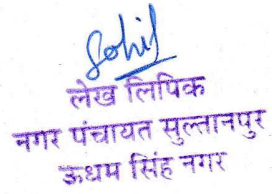 Sohil
लेख लिपिक
नगर पंचायत सुल्तानपुर
ऊधम सिंह नगर